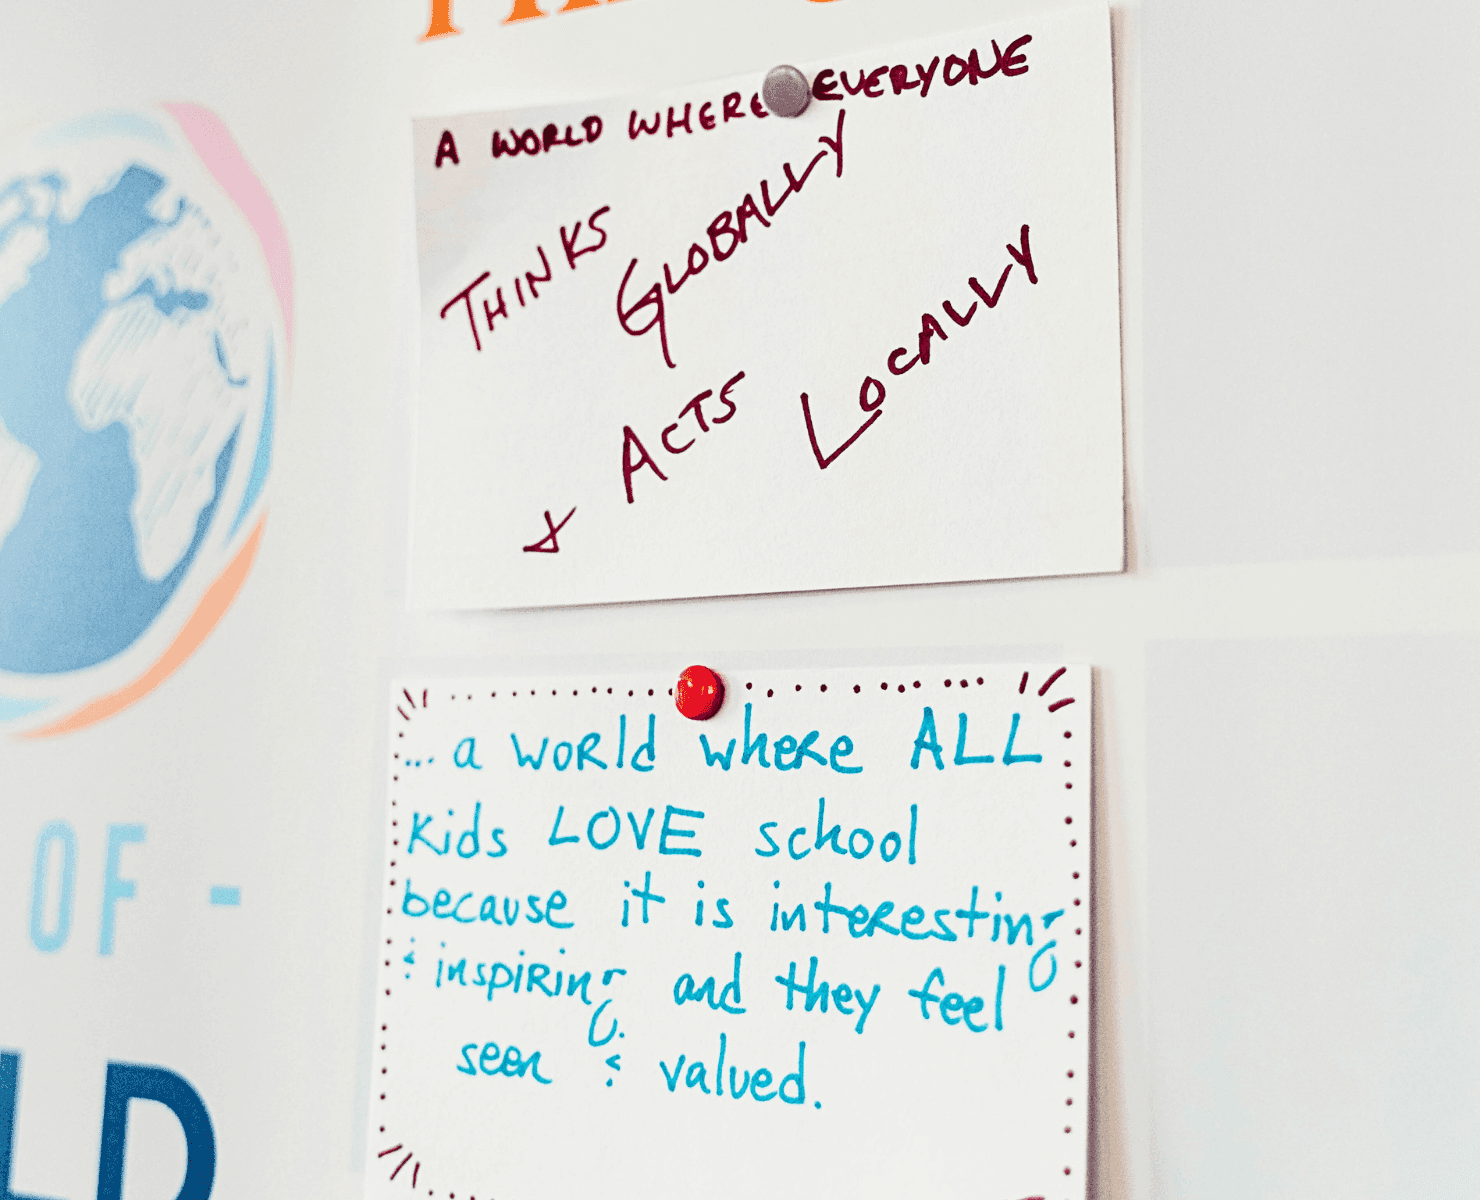 A WORLD WHERE EVERYONE
THINKS GLOBALLY
& ACTS LOCALLY
... a world where ALL
kids LOVE school
because it is interesting
& inspiring and they feel
seen & valued.
OF -
LD